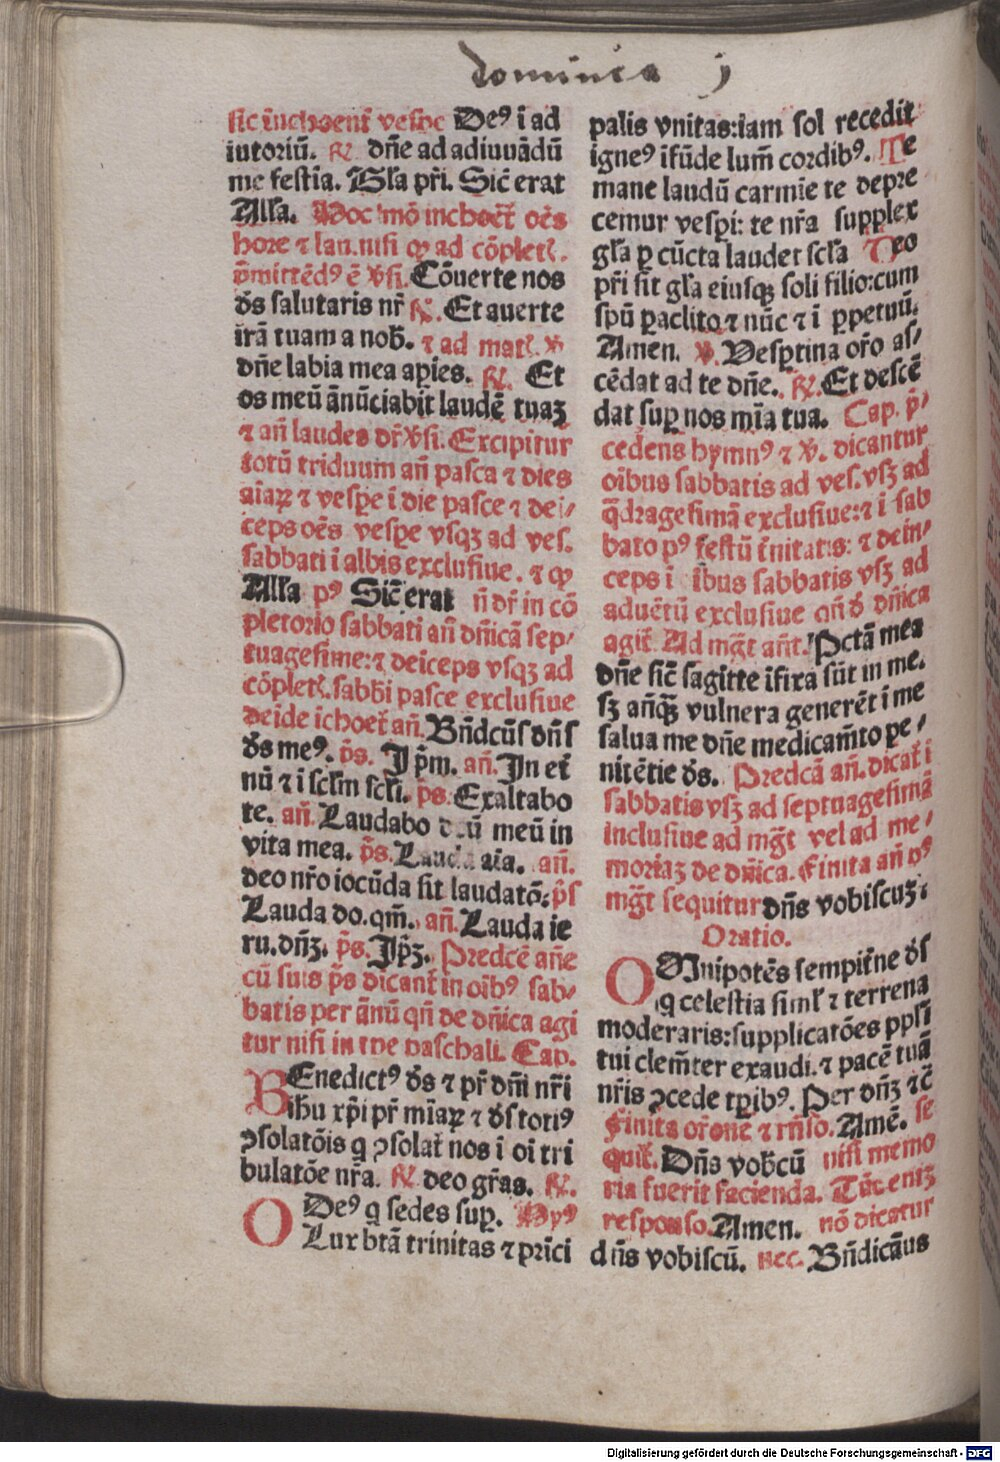 dominica j
sic īnchoent᷑ vespe Deꝰ ī ad
iutoriū. ℟ dn̄e ad adiuuādū
me festīa. Gl̄a pr̄i. Sic̄ erat
All̄a. Hoc mō inchoēt᷑ oēs
hore ⁊ lau. nisi ꝙ ad cōpletꝭ.
p̄mittēdꝰ ē v̄si. Cōuerte nos
d̄s salutaris nr̄ ℟. Et auerte
irā tuam a nob̄. ⁊ ad matꝭ. ℣
dn̄e labia mea apies. ℟. Et
os meū ānūciabit laudē tuaꝫ
⁊ an̄ laudes dr̄ v̄si. Excipitur
totū triduum an̄ pasca ⁊ dies
aīaꝝ ⁊ vespe ī die pasce ⁊ dei/
ceps oēs vespe vsqꝫ ad ves.
sabbati ī albis exclusiue. ⁊ ꝙ
All̄a pꝰ Sic̄ erat n̄ dr̄ in cō
pletorio sabbati an̄ dn̄icā sep/
tuagesime: ⁊ deiceps vsqꝫ ad
cōpletꝭ. sabbi pasce exclusiue
deīde īchoet᷑ an̄. Bn̄dcūs dn̄s
d̄s meꝰ. p̄s. Ip̄m. an̄. In et̄
nū ⁊ ī scl̄m scl̄i. p̄s. Exaltabo
te. an̄. Laudabo deū meū in
vita mea. p̄s. Lauda aīa. an̄.
deo nr̄o iocūda sit laudatō: p̄s
Lauda do. qm̄. an̄. Lauda ie
ru. dn̄ꝫ. p̄s. Ip̄ꝫ. Predcē an̄e
cū suis p̄s dicant᷑ in oībꝰ sab/
batis per ānū qn̄ de dn̄ica agi
tur nisi in tpe paschali. Cap.
BEnedictꝰ d̄s ⁊ pr̄ dn̄i nr̄i
ih̄u xp̄i pr̄ mīaꝝ ⁊ d̄s totiꝰ
ꝯsolatōis q ꝯsolat᷑ nos ī oī tri
bulatōe nr̄a. ℟ deo gr̄as. ℟.
O Deꝰ q sedes suꝑ. Hypꝰ
Lux btā trinitas ⁊ prīci
palis vnitas: iam sol recedit
igneꝰ īfūde lum̄ cordibꝰ. Te
mane laudū carmīe te depre
cemur vesꝑi: te nr̄a supplex
gl̄a ꝑ cūcta laudet scl̄a Deo
pr̄i sit gl̄a eiusqꝫ soli filio: cum
spū ꝑaclito ⁊ nūc ⁊ ī ꝑpetuū.
Amen. ℣. Vesꝑtina or̄o as/
cēdat ad te dn̄e. ℟. Et descē
dat suꝑ nos mīa tua. Cap. p̄/
cedens hymnꝰ ⁊ ℣. dicantur
oībus sabbatis ad ves. vsꝫ ad
q̄dragesimā exclusiue: ⁊ ī sab
bato pꝰ festū t̄nitatis: ⁊ dein/
ceps ī ībus sabbatis vsꝫ ad
aduētū exclusiue qn̄ d̄ dn̄ica
agit᷑. Ad mg̅t an̄t. Pctā mea
dn̄e sic̄ sagitte īfixa sūt in me.
sꝫ an̄qꝫ vulnera generēt ī me
salua me dn̄e medicam̄to pe/
nitētie d̄s. Predcā an̄. dicat᷑ ī
sabbatis vsꝫ ad septuagesimā
inclusiue ad mg̅t vel ad me/
moriaꝫ de dn̄ica. Finita an̄ pꝰ
mg̅t sequitur dn̄s vobiscuꝫ:
Oratio.
OMnipotēs sempit̄ne d̄s
q celestia siml̄ ⁊ terrena
moderaris: supplicatōes ppl̄i
tui clem̄ter exaudi. ⁊ pacē tuā
nr̄is ꝯcede tꝑibꝰ. Per dn̄ꝫ ⁊c̄
Finita or̄one ⁊ rn̄so. Amē. se
quit᷑. Dn̄s vob̄cū nisi memo
ria fuerit facienda. Tūc eniꝫ
responso. Amen. nō dicatur
dn̄s vobiscū. nec. Bn̄dicāus
Digitalisierung gefördert durch die Deutsche Forschungsgemeinschaft - DFG